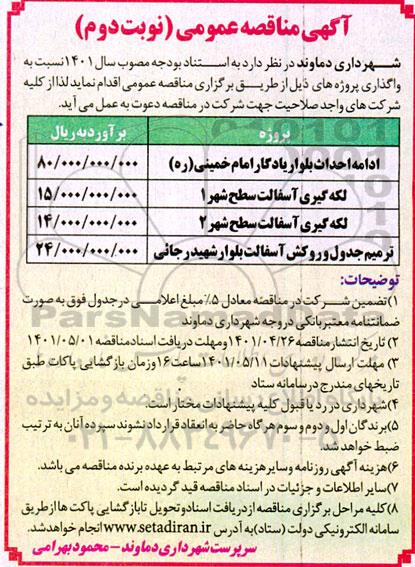 آگهی مناقصه عمومی (نوبت دوم)
شهرداری دماوند در نظر دارد به استناد بودجه مصوب سال ۱۴۰۱ نسبت به
واگذاری پروژه های ذیل از طریق برگزاری مناقصه عمومی اقدام نماید لذا از کلیه
شرکت های واجد صلاحیت جهت شرکت در مناقصه دعوت به عمل می آید.
پروژه برآورد به ریال
ادامه احداث بلوار یادگار امام خمینی (ره) ۸۰/۰۰۰/۰۰۰/۰۰۰
لکه گیری آسفالت سطح شهر ۱ ۱۵/۰۰۰/۰۰۰/۰۰۰
لکه گیری آسفالت سطح شهر ۲ ۱۴/۰۰۰/۰۰۰/۰۰۰
ترمیم جدول و روکش آسفالت بلوار شهید رجائی ۲۴/۰۰۰/۰۰۰/۰۰۰
توضیحات:
۱) تضمین شرکت در مناقصه معادل ۵٪ مبلغ اعلامی در جدول فوق به صورت
ضمانتنامه معتبر بانکی در وجه شهرداری دماوند
۲) تاریخ انتشار مناقصه ۱۴۰۱/۰۴/۲۶ ومهلت دریافت اسناد مناقصه ۱۴۰۱/۰۵/۰۱
۳) مهلت ارسال پیشنهادات ۱۴۰۱/۰۵/۱۱ ساعت ۱۶ وزمان بازگشایی پاکات طبق
تاریخهای مندرج در سامانه ستاد
۴) شهرداری در رد یا قبول کلیه پیشنهادات مختار است.
۵) برندگان اول و دوم و سوم هر گاه حاضر به انعقاد قرارداد نشوند سپرده آنان به ترتیب
ضبط خواهد شد.
۶) هزینه آگهی روزنامه و سایر هزینه های مرتبط به عهده برنده مناقصه می باشد.
۷) سایر اطلاعات و جزئیات در اسناد مناقصه قید گردیده است.
۸) کلیه مراحل برگزاری مناقصه از دریافت اسناد و تحویل تا بازگشایی پاکت ها از طریق
سامانه الکترونیکی دولت (ستاد) به آدرس www.setadiran.ir انجام خواهد شد.
سرپرست شهرداری دماوند - محمود بهرامی
ParsNamadData
۰۲۱-۸۸۳۴۹۶۷۰-۵